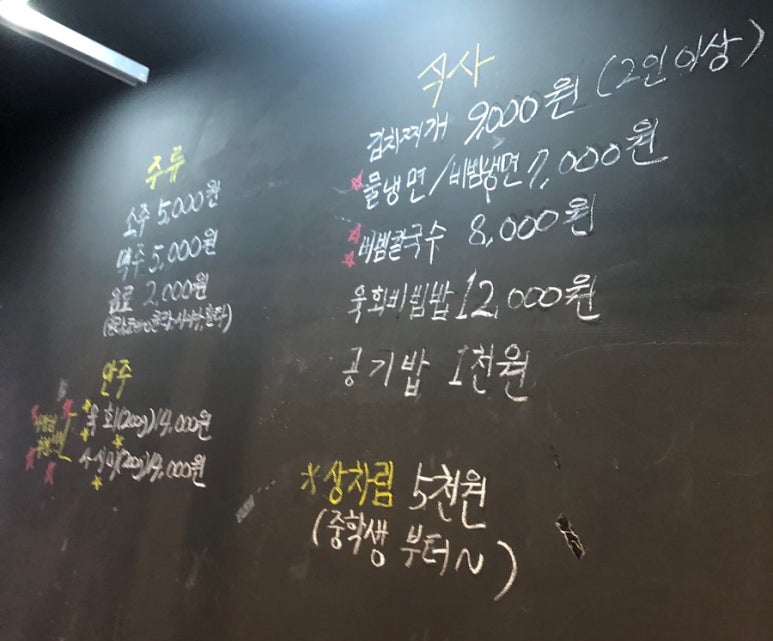 주류
소주 5,000원
맥주 5,000원
음료 2,000원
안주
육회(200g) 19,000원
사시미(200g) 19,000원
식사
김치찌개 9,000원 (2인 이상)
물냉면/비빔냉면 7,000원
비빔칼국수 8,000원
육회비빔밥 12,000원
공기밥 1천원
*상차림 5천원
(중학생 부터~)